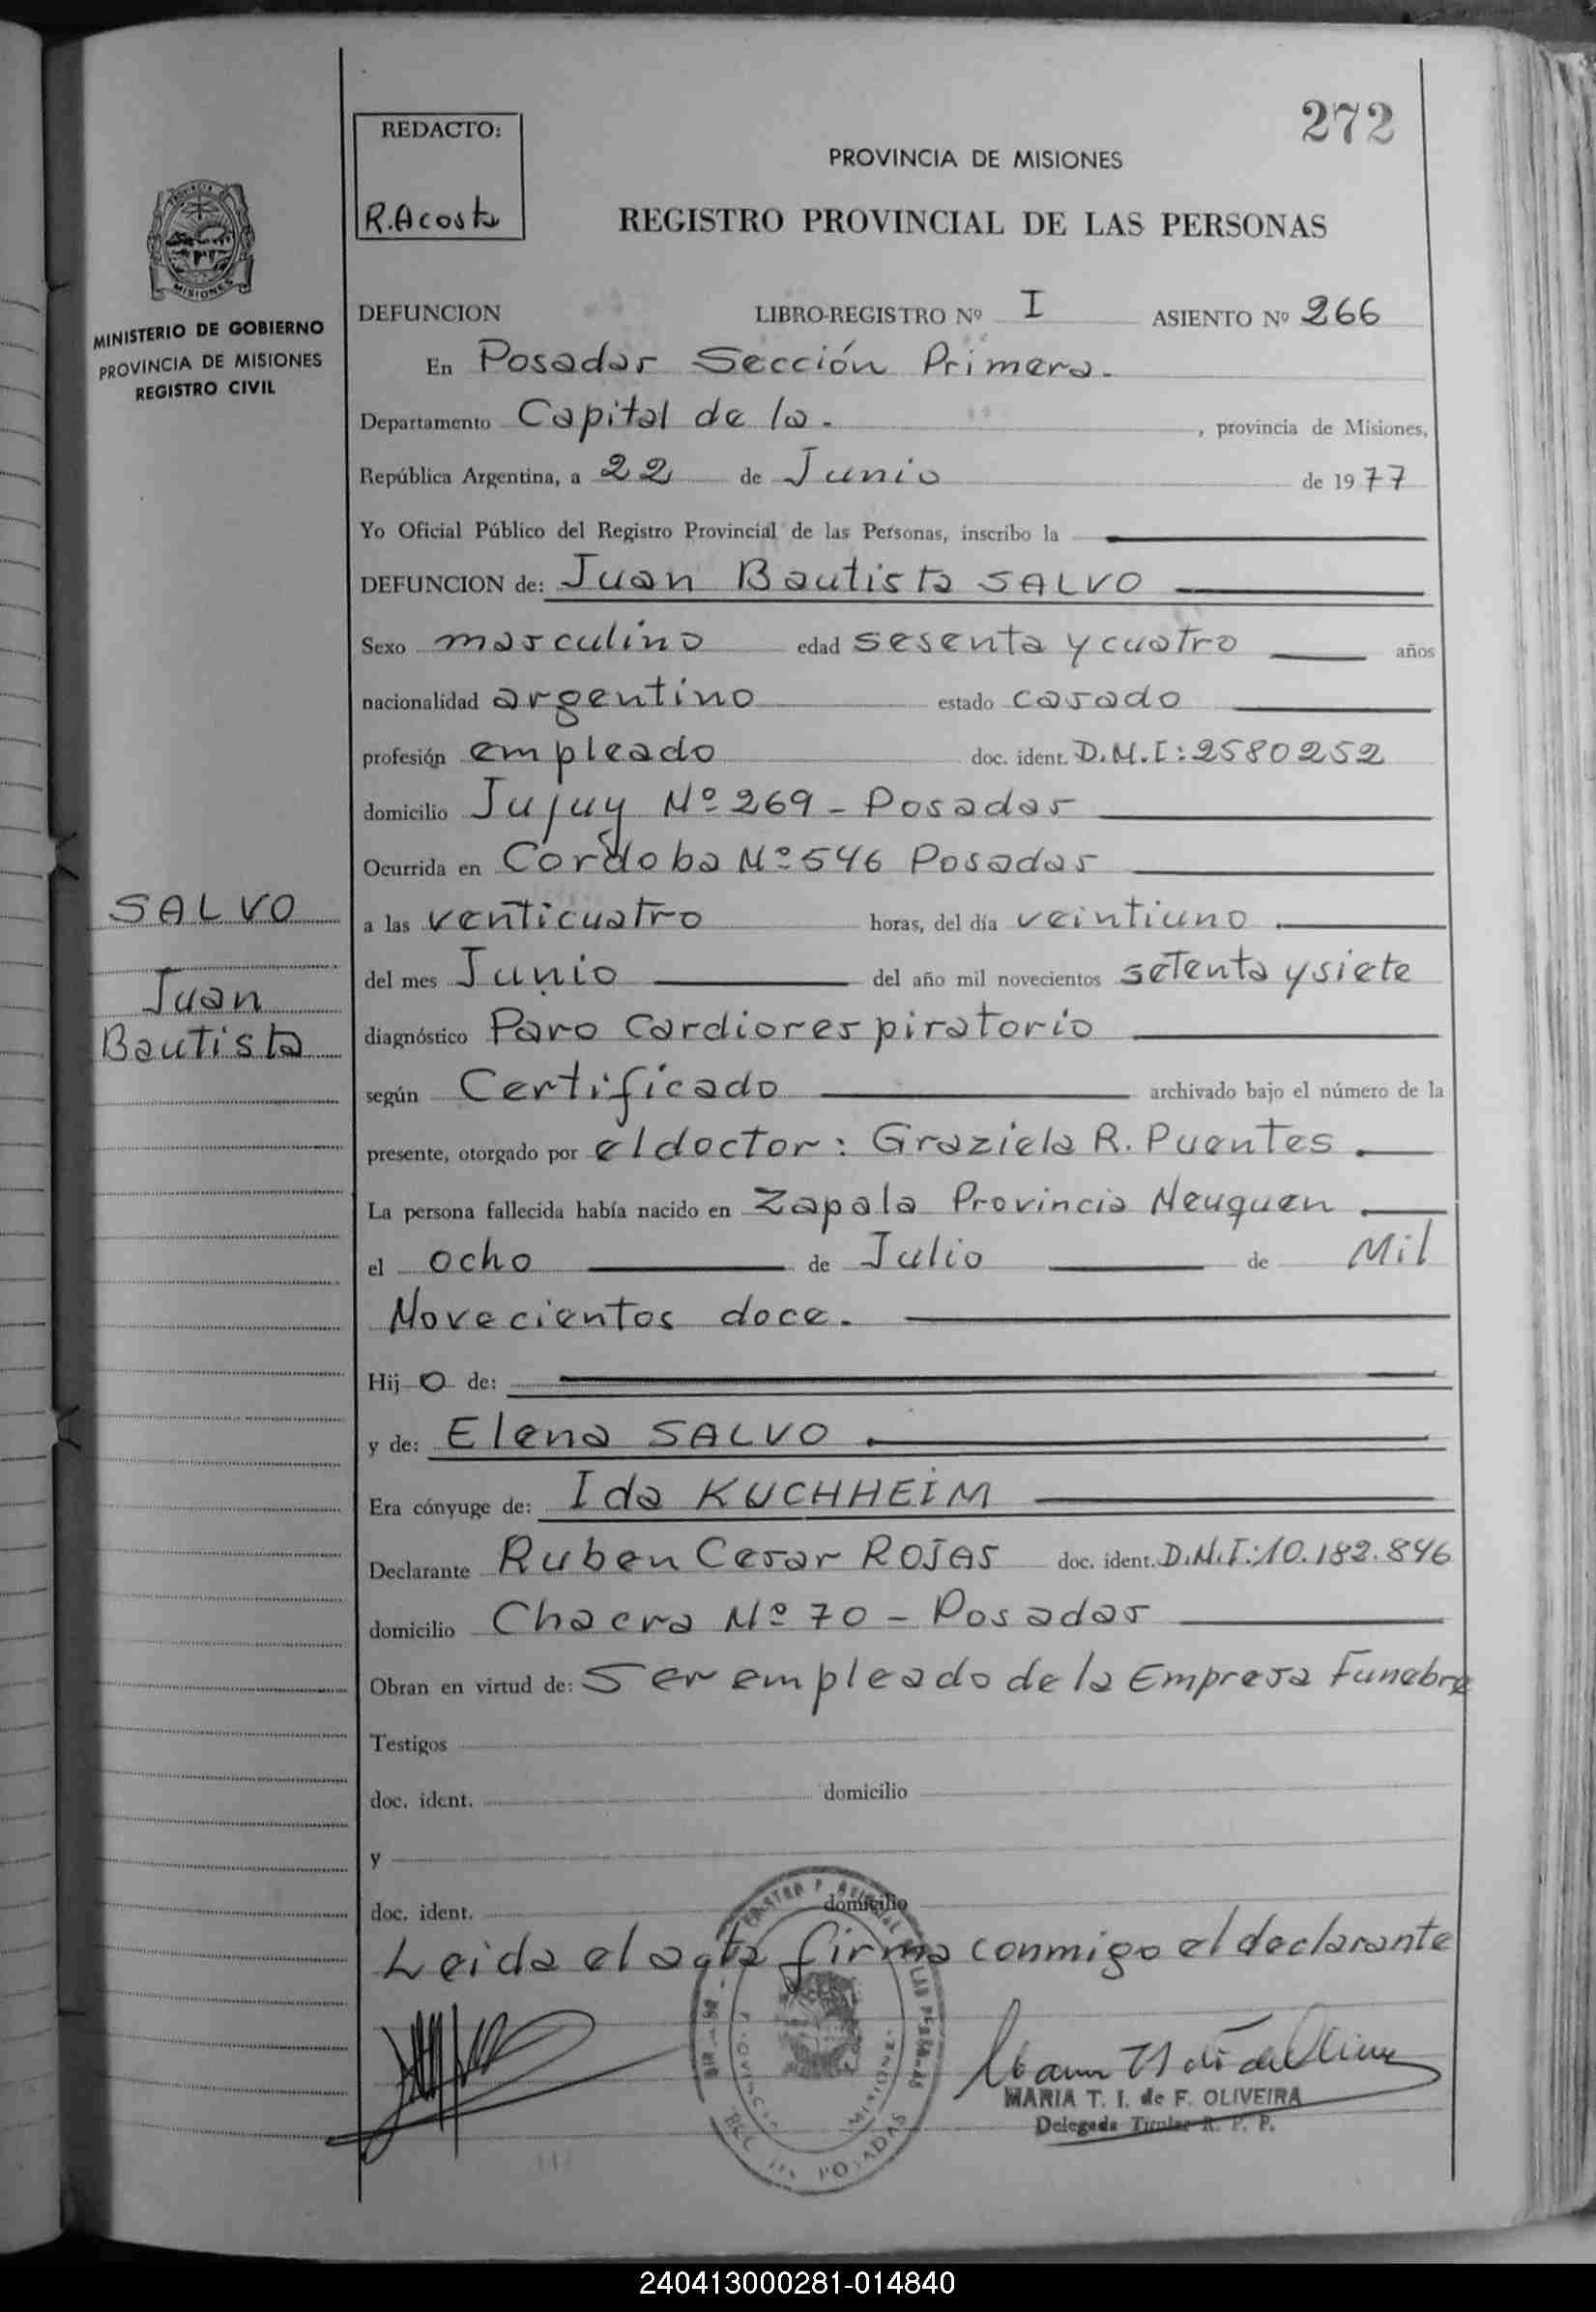 272
REDACTO:
R. Acosta
PROVINCIA DE MISIONES
REGISTRO PROVINCIAL DE LAS PERSONAS
MISIONES
MINISTERIO DE GOBIERNO
PROVINCIA DE MISIONES
REGISTRO CIVIL
DEFUNCION LIBRO-REGISTRO Nº I ASIENTO Nº 266
En Posadas Sección Primera.
Departamento Capital de la. , provincia de Misiones,
República Argentina, a 22 de Junio de 1977
Yo Oficial Público del Registro Provincial de las Personas, inscribo la
DEFUNCION de: Juan Bautista SALVO
Sexo masculino edad sesenta y cuatro años
nacionalidad argentino estado casado
profesión empleado doc. ident. D.N.I: 2580252
domicilio Jujuy Nº 269 - Posadas
Ocurrida en Cordoba Nº 546 Posadas
SALVO
Juan
Bautista
a las venticuatro horas, del día veintiuno
del mes Junio del año mil novecientos setenta y siete
diagnóstico Paro Cardiorespiratorio
según Certificado archivado bajo el número de la
presente, otorgado por el doctor: Graziela R. Puentes
La persona fallecida había nacido en Zapala Provincia Neuquen
el ocho de Julio de Mil
Novecientos doce.
Hijo de:
y de: Elena SALVO
Era cónyuge de: Ida KUCHHEIM
Declarante Ruben Cesar ROJAS doc. ident. D.N.I: 10.182.846
domicilio Chacra Nº 70 - Posadas
Obran en virtud de: Ser empleado de la Empresa Funebre
Testigos
doc. ident. domicilio
y
doc. ident. domicilio
Leida el acta firma conmigo el declarante
MISIONES
POSADAS
MARIA T. I. de F. OLIVEIRA
Delegada Titular R. P. P.
240413000281-014840